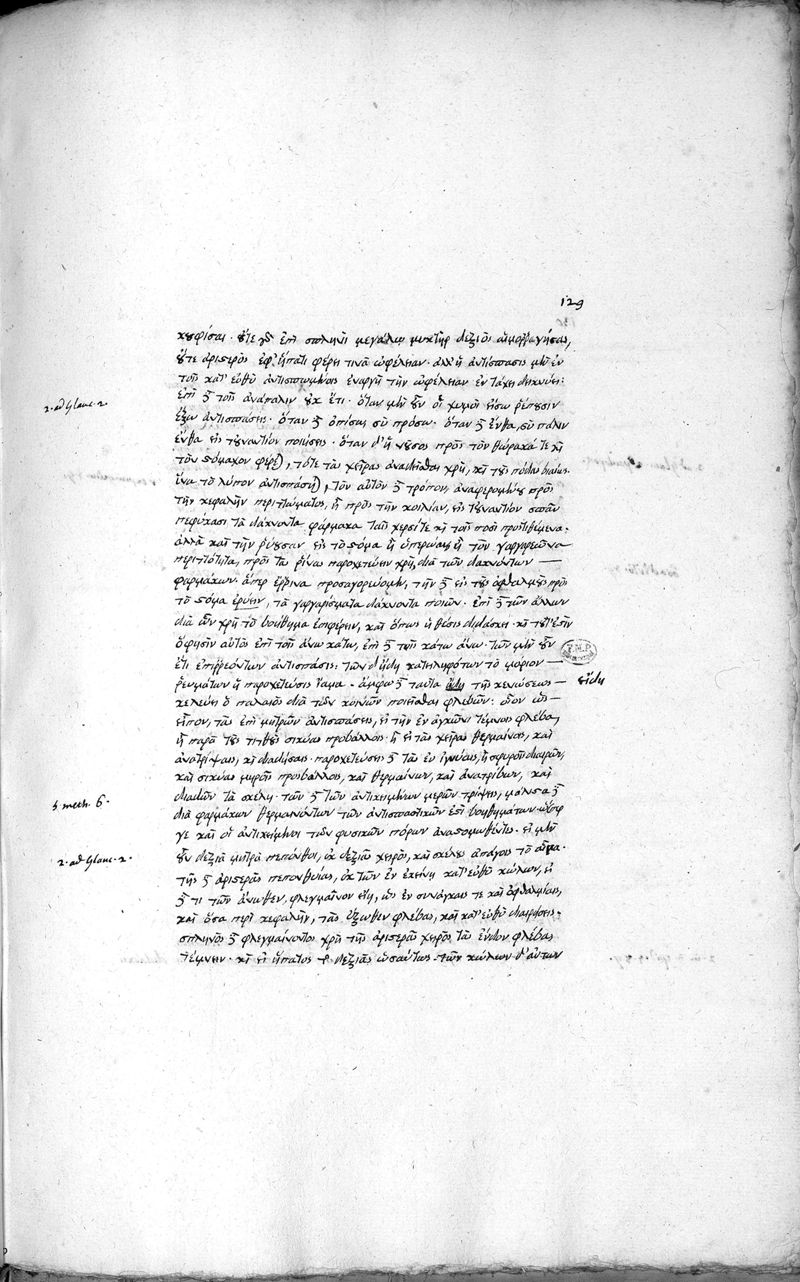 129
κουφίσαι· οὔτε γὰρ ἐπὶ σπληνὶ μεγάλῳ μυκτὴρ δεξιὸς αἱμορραγήσας,
οὔτε ἀριστερὸς ἐφ' ἥπατι φέρει τινὰ ὠφέλειαν· ἀλλ' ἡ ἀντίσπασις μὲν ἐν
τοῖς κατ' εὐθὺ ἀντισπωμένοις ἐναργῆ τὴν ὠφέλειαν ἐν τάχει δείκνυσι:
2. ad Glauc. 2.
ἐπὶ δὲ τοῖς ἀνάπαλιν οὐκ ἔτι· ὅταν μὲν οὖν οἱ χυμοὶ εἴσω ῥέπωσιν
ἔξω ἀντισπάσεις· ὅταν δὲ ὀπίσω σὺ πρόσω· ὅταν δὲ ἔνθα, σὺ πάλιν
ἔνθα εἰς τοὐναντίον ποιήσεις· ὅταν δ' ἡ νοῦσος πρὸς τὸν θώρακά τε καὶ
τὸν στόμαχον φέρεται, τότε τὰς χεῖρας ἀναδεῖσθαι χρὴ, καὶ τοὺς πόδας
ἵνα τὸ λύπον ἀντισπάσῃ, τὸν αὐτὸν δὲ τρόπον, ἀναφερομένου πρὸς
τὴν κεφαλὴν περιττώματος, ἢ πρὸς τὴν κοιλίαν, εἰς τοὐναντίον σπᾶν
πεφύκασι τὰ δάκνοντα φάρμακα ταῖς χερσί τε καὶ τοῖς ποσὶ προστιθέμενα·
ἀλλὰ καὶ τὴν ῥέουσαν εἰς τὸ στόμα ἢ ὑπερώας ἢ τὸν γαργαρεῶνα
περιττότητα, πρὸς τὰς ῥῖνας παροχετεύειν χρὴ διὰ τῶν δακνόντων
φαρμάκων· ἅπερ ἔρρινα προσαγορεύομεν, τὴν δὲ εἰς τοὺς ὀφθαλμοὺς πρὸς
τὸ στόμα ἐρύειν, τὰ γαργαρίσματα δάκνοντα ποιῶν· ἐπὶ δὲ τῶν ἄλλων
διὰ ὧν χρὴ τὸ βοήθημα ἐπιφέρειν, καὶ ὅπως ἡ θέσις διδάσκει· καὶ τοῦτ' ἔστιν
ὅ φησιν αὐτὸς ἐπὶ τοῖς ἄνω κάτω, ἐπὶ δὲ τοῖς κάτω ἄνω· τῶν μὲν οὖν
ἔτι ἐπιρρεόντων ἀντίσπασις: τῶν δ' ἤδη κατειληφότων τὸ μόριον
ῥευμάτων ἡ παροχέτευσις ἴαμα· ἄμφω δὲ ταῦτα τῆς κενώσεως
εἴδη
κελεύει ὁ παλαιὸς διὰ τῶν κοινῶν ποιεῖσθαι φλεβῶν· οἷον ὡς
εἶπον, τὰς ἐπὶ μητρῶν ἀντισπάσεις, εἰ τὴν ἐν ἀγκῶνι τέμνοις φλέβα,
ἢ παρὰ τοὺς τιτθοὺς σικύας προβάλλοις· ἢ εἰ τὰς χεῖρας θερμαίνοις, καὶ
ἀνατρίψαις, καὶ διαδήσαις· παροχετεύσεις δὲ τὰς ἐν ἰγνύσιν, ἢ σφυροῖς διαιρῶν,
καὶ σικύας μηροῖς προσβάλλοις, καὶ θερμαίνων, καὶ ἀνατρίβων, καὶ
5 meth. 6.
διαδῶν τὰ σκέλη· τῶν δὲ τῶν ἀντικειμένων μερῶν τρίψεις, μάλιστα δὲ
διὰ φαρμάκων θερμαινόντων τῶν ἀντισπαστικῶν ἐστὶ βοηθημάτων
γε καὶ οἱ ἀντικείμενοι τῶν φυσικῶν πόρων ἀναστομωθέντες· εἰ μὲν
2. ad Glauc. 2.
οὖν δεξιὰ μήτρα πεπόνθοι, ἐκ δεξιᾶς χειρὸς, καὶ σκέλους ἀπάγοις τὸ αἷμα·
τῆς δὲ ἀριστερᾶς πεπονθυίας, ἐκ τῶν ἐν ἐκείνῃ κατ' εὐθὺ κώλων, εἰ
δέ τι τῶν ἄνωθεν, φλεγμαῖνον εἴη, ὡς ἐν συνάγχαις τε καὶ ὀφθαλμίαις,
καὶ ὅσα περὶ κεφαλὴν, τὰς ἔξωθεν φλέβας, καὶ κατ' εὐθὺ διαιρήσεις·
σπληνὸς δὲ φλεγμαίνοντος χρὴ τῆς ἀριστερᾶς χειρὸς τὰς ἔνδον φλέβας
τέμνειν· καὶ εἰ ἥπατος τῆς δεξιᾶς ὡσαύτως· τῶν κώλων δ' αὐτῶν